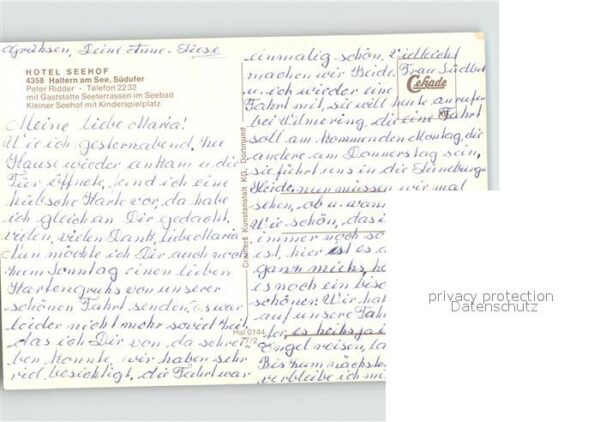 Grüßsen, Deine Anne-Liese
HOTEL SEEHOF
4358 Haltern am See, Südufer
Peter Ridder - Telefon 2232
mit Gaststätte Seeterrassen im Seebad
Kleiner Seehof mit Kinderspielplatz
Meine liebe Maria!
Wie ich gesternabend, zu
Hause wieder ankam u. die
Tür öffnete, fand ich eine
hübsche Karte vor, da habe
ich gleich an Dir gedacht,
vielen, vielen Dank, liebe Maria
Nun möchte ich Dir auch noch
zum Sonntag einen lieben
Kartengruß von unserer
schönen Fahrt senden, Es war
leider nicht mehr soviel Zeit
das ich Dir von da schrei-
ben konnte, wir haben sehr
viel besichtigt, die Fahrt war
Grafiers Kunstanstalt KG, Dortmund
Hal 0144
77/2
einmalig schön, Vielleicht
machen wir Beide, Frau
u. ich wieder eine
Fahrt mit, sie will heute anrufen
bei die eine Fahrt
soll am kommenden Montag, die
andere am Donnerstag sein,
sie führt uns in die Lüneburger
Heide, nun müssen wir mal
sehen, ob u. wann
Wie schön, das
immer noch so
ist, hier ist es
ganz
es noch ein
schöner. Wir
auf unsere
fer, es heißt ja
Engel reisen,
Bis zum nächsten
verbleibe ich
Cekade
privacy protection
Datenschutz